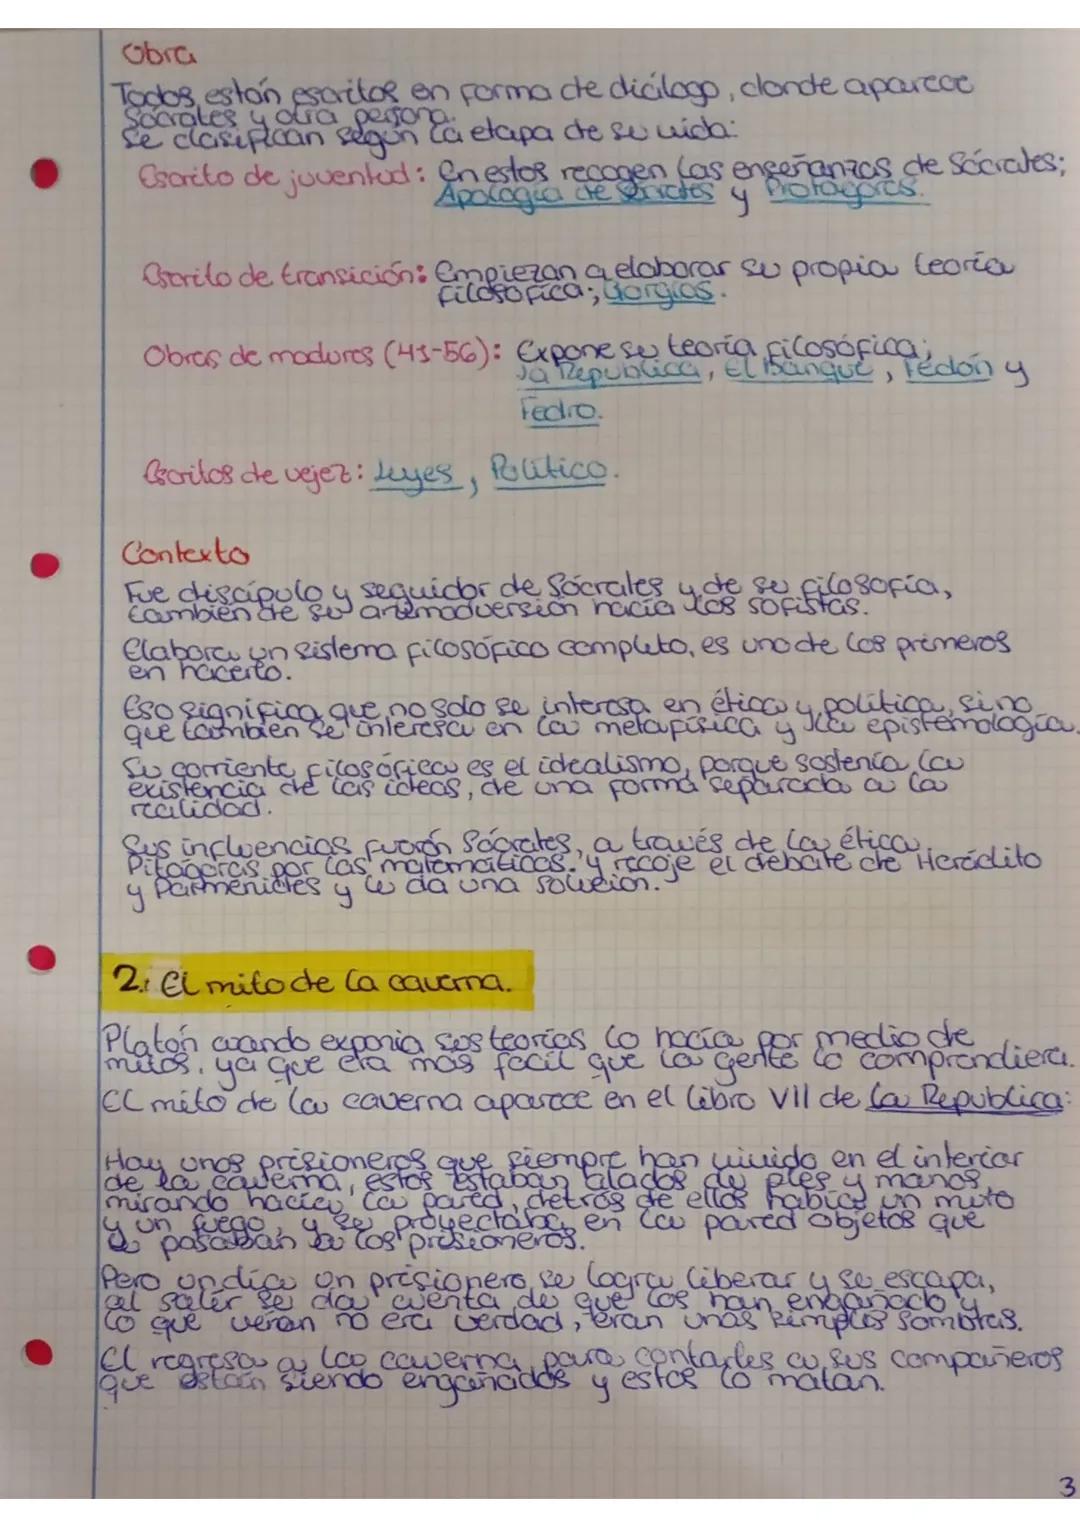 Obra
Todos están escritos en forma de diálogo, donde aparece
Sócrates y otra persona.
Se clasifican según la etapa de su vida:
Escrito de juventud: En estos recogen las enseñanzas de Sócrates;
Apología de Sócrates y Protágoras.
Escrito de transición: Empiezan a elaborar su propia teoría
filosófica; Gorgias.
Obras de madures (41-56): Expone su teoría filosófica;
La República, El Banque, Fedón y
Fedro.
Escritos de vejez: Leyes, Político.
Contexto
Fue discípulo y seguidor de Sócrates y de su filosofía,
también de su animadversión hacia los sofistas.
Elabora un sistema filosófico completo, es uno de los primeros
en hacerlo.
Eso significa que no solo se interesa en ética y política, sino
que también se interesa en la metafísica y la epistemología.
Su corriente filosófica es el idealismo, porque sostenía la
existencia de las ideas, de una forma separada a la
realidad.
Sus influencias fuerón Sócrates, a través de la ética,
Pitágoras por las matemáticas. y recoje el debate de Heráclito
y Parménides y le da una solución.
2. El mito de la caverna.
Platón cuando exponia sus teorías lo hacía por medio de
mitos, ya que era más fácil que la gente lo comprendiera.
El mito de la caverna aparece en el libro VII de La República:
Hay unos prisioneros que siempre han vivido en el interior
de la caverna, estos estaban atados de pies y manos,
mirando hacia la pared, detrás de ellos había un muro
y un fuego, y se proyectaba en la pared objetos que
pasaban a los prisioneros.
Pero un día un prisionero se logra liberar y se escapa,
al salir se da cuenta de que los han engañado y
lo que veían no era verdad, eran unas simples sombras.
El regresa a la caverna para contarles a sus compañeros
que están siendo engañados y estos lo matan.
3